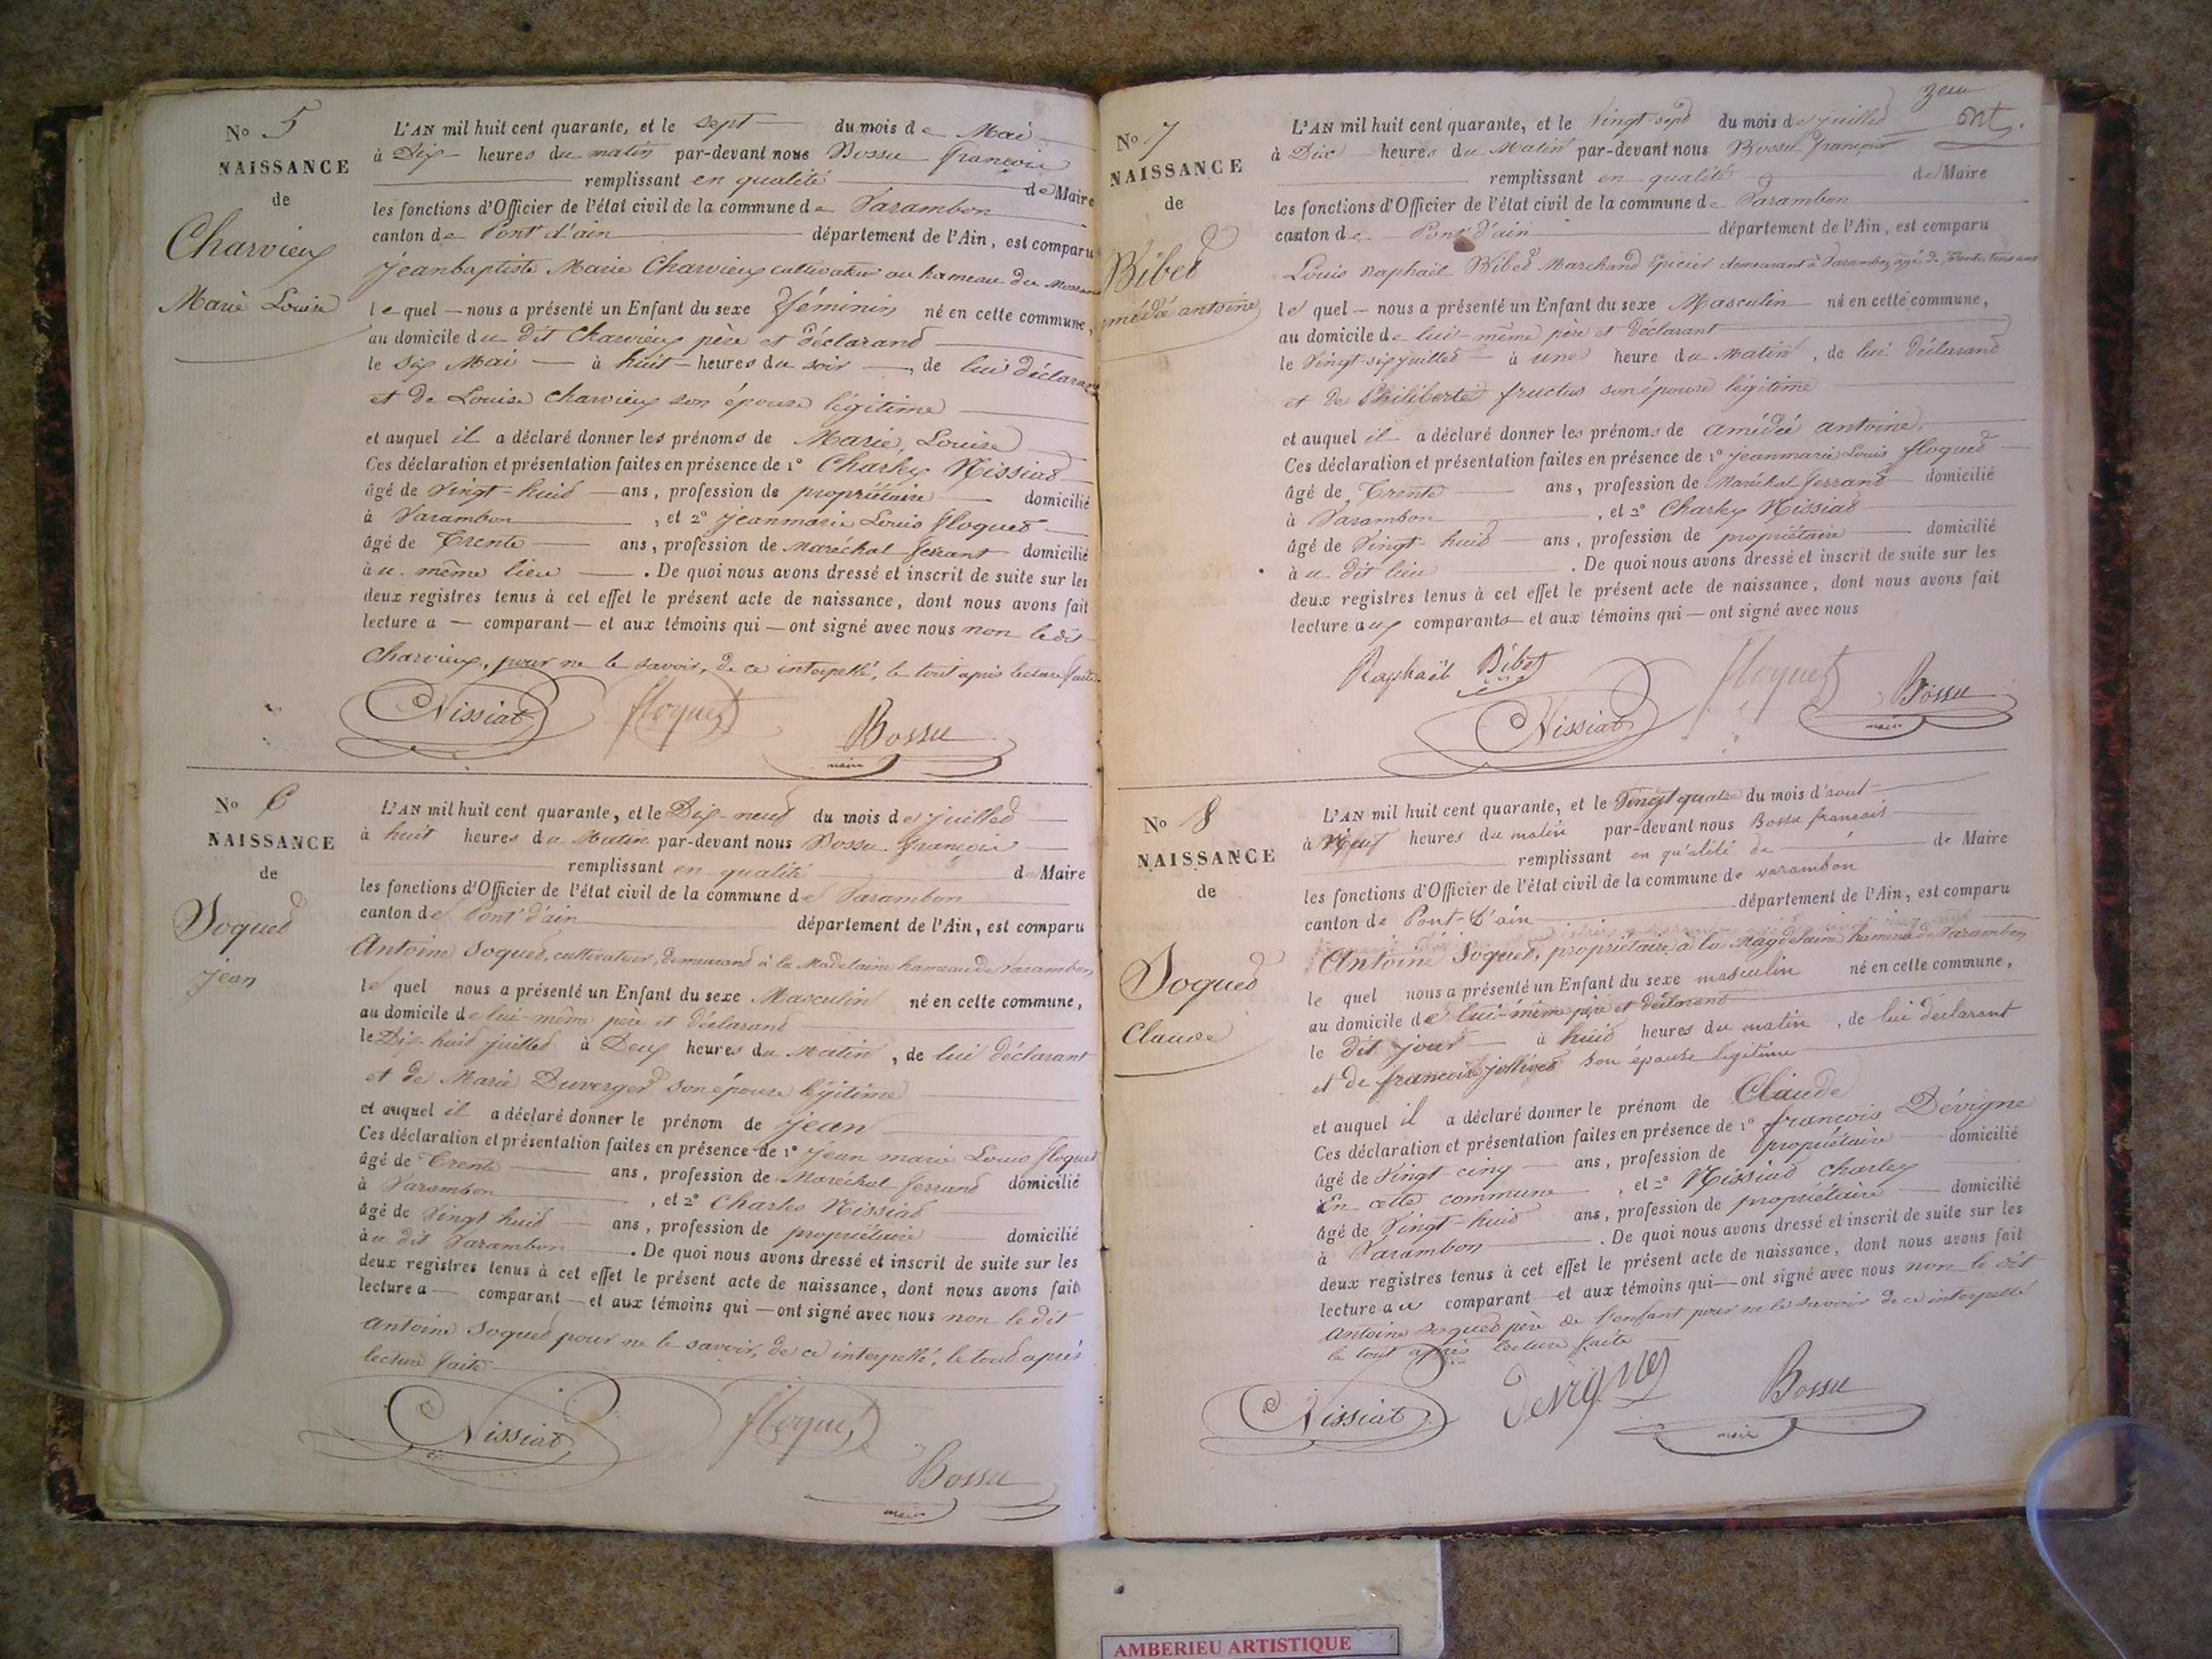 N° 5
NAISSANCE
de
Charvieux
Marie Louise
L'AN mil huit cent quarante, et le sept du mois de Mai
à Dix heures du matin par-devant nous Bossu françois
remplissant en qualité de Maire
les fonctions d'Officier de l'état civil de la commune de Varambon
canton de Pont d'ain département de l'Ain, est comparu
jeanbaptiste Marie Charvieux cultivateur au hameau du
le quel — nous a présenté un Enfant du sexe féminin né en cette commune,
au domicile du dit Charvieux père et déclarand
le six Mai — à huit heures du soir —, de lui déclarant
et de Louise Charvieux son épouse légitime
et auquel il a déclaré donner les prénoms de Marie, Louise
Ces déclaration et présentation faites en présence de 1° Charles Nissiat
âgé de Vingt-huid — ans, profession de propriétaire — domicilié
à Varambon, et 2° jeanmarie Louis floqued
âgé de Trente — ans, profession de Maréchal ferrant domicilié
au même lieu — . De quoi nous avons dressé et inscrit de suite sur les
deux registres tenus à cet effet le présent acte de naissance, dont nous avons fait
lecture a — comparant — et aux témoins qui — ont signé avec nous non le dit
Charvieux, pour ne le savoir, de ce interpellé, le tout après lecture faite
Nissiat floquet Bossu
maire
N° 6
NAISSANCE
de
Soqued
jean
L'AN mil huit cent quarante, et le Dix-neuf du mois de juilled
à huit heures du Matin par-devant nous Bossu françois
remplissant en qualité de Maire
les fonctions d'Officier de l'état civil de la commune de Varambon
canton de Pont d'ain département de l'Ain, est comparu
Antoine Soqued, cultivateur, demeurand à la Madelaine hameau de Varambon
le quel nous a présenté un Enfant du sexe Masculin né en cette commune,
au domicile de lui-même père et déclarand
le Dix-huid juilled à Deux heures du Matin, de lui déclarant
et de Marie Duverger son épouse légitime
et auquel il a déclaré donner le prénom de jean
Ces déclaration et présentation faites en présence de 1° jean marie Louis floqued
âgé de Trente — ans, profession de Maréchal ferrand domicilié
à Varambon, et 2° Charles Nissiad
âgé de Vingt huid — ans, profession de propriétaire domicilié
au dit Varambon — . De quoi nous avons dressé et inscrit de suite sur les
deux registres tenus à cet effet le présent acte de naissance, dont nous avons fait
lecture a — comparant — et aux témoins qui — ont signé avec nous non le dit
Antoine Soqued pour ne le savoir, de ce interpellé, le toud après
lecture faite
Nissiat floquet
Bossu
maire
N° 7
NAISSANCE
de
Bibet
médée antoine
L'AN mil huit cent quarante, et le Vingt-sept du mois de juilled
à Dix heures du Matin par-devant nous Bossu françois
remplissant en qualité de Maire
les fonctions d'Officier de l'état civil de la commune de Varambon
canton de Pont d'ain département de l'Ain, est comparu
Louis Raphaël Bibet Marchand Epicier demeurant à Varambon, agé de Trente trois ans
le quel — nous a présenté un Enfant du sexe Masculin né en cette commune,
au domicile de lui-même père et déclarant
le Vingt-six juilled — à une heure du Matin, de lui déclarand
et de Philiberte fructus son épouse légitime
et auquel il a déclaré donner les prénoms de amédée antoine
Ces déclaration et présentation faites en présence de 1° jeanmarie Louis floqued
âgé de Trente — ans, profession de Maréchal ferrand domicilié
à Varambon, et 2° Charles Nissiad
âgé de Vingt-huid — ans, profession de propriétaire — domicilié
au dit lieu . De quoi nous avons dressé et inscrit de suite sur les
deux registres tenus à cet effet le présent acte de naissance, dont nous avons fait
lecture aux comparants et aux témoins qui — ont signé avec nous
Raphaël Bibet floquet Bossu
Nissiat maire
N° 8
NAISSANCE
de
Soqued
Claude
L'AN mil huit cent quarante, et le Vingt quatre du mois d'aout
à Neuf heures du matin par-devant nous Bossu francois
remplissant en qu'alité de de Maire
les fonctions d'Officier de l'état civil de la commune de varambon
canton de Pont-d'ain département de l'Ain, est comparu
Antoine Soqued, propriétaire à la Magdelaine hameau de Varambon
le quel nous a présenté un Enfant du sexe masculin né en cette commune,
au domicile de lui-même père et déclarant
le dit jour — à huid heures du matin, de lui déclarant
et de francoise son épouse légitime
et auquel il a déclaré donner le prénom de Claude
Ces déclaration et présentation faites en présence de 1° francois Dévigne
âgé de Vingt-cinq — ans, profession de propriétaire — domicilié
En cette commune, et 2° Nissiad Charles
âgé de Vingt-huid ans, profession de propriétaire — domicilié
à Varambon . De quoi nous avons dressé et inscrit de suite sur les
deux registres tenus à cet effet le présent acte de naissance, dont nous avons fait
lecture au comparant et aux témoins qui — ont signé avec nous non le dit
Antoine Soqued père de l'enfant pour ne le savoir de ce interpellé
le tout après lecture faite
Nissiat Devigne Bossu
maire
AMBERIEU ARTISTIQUE